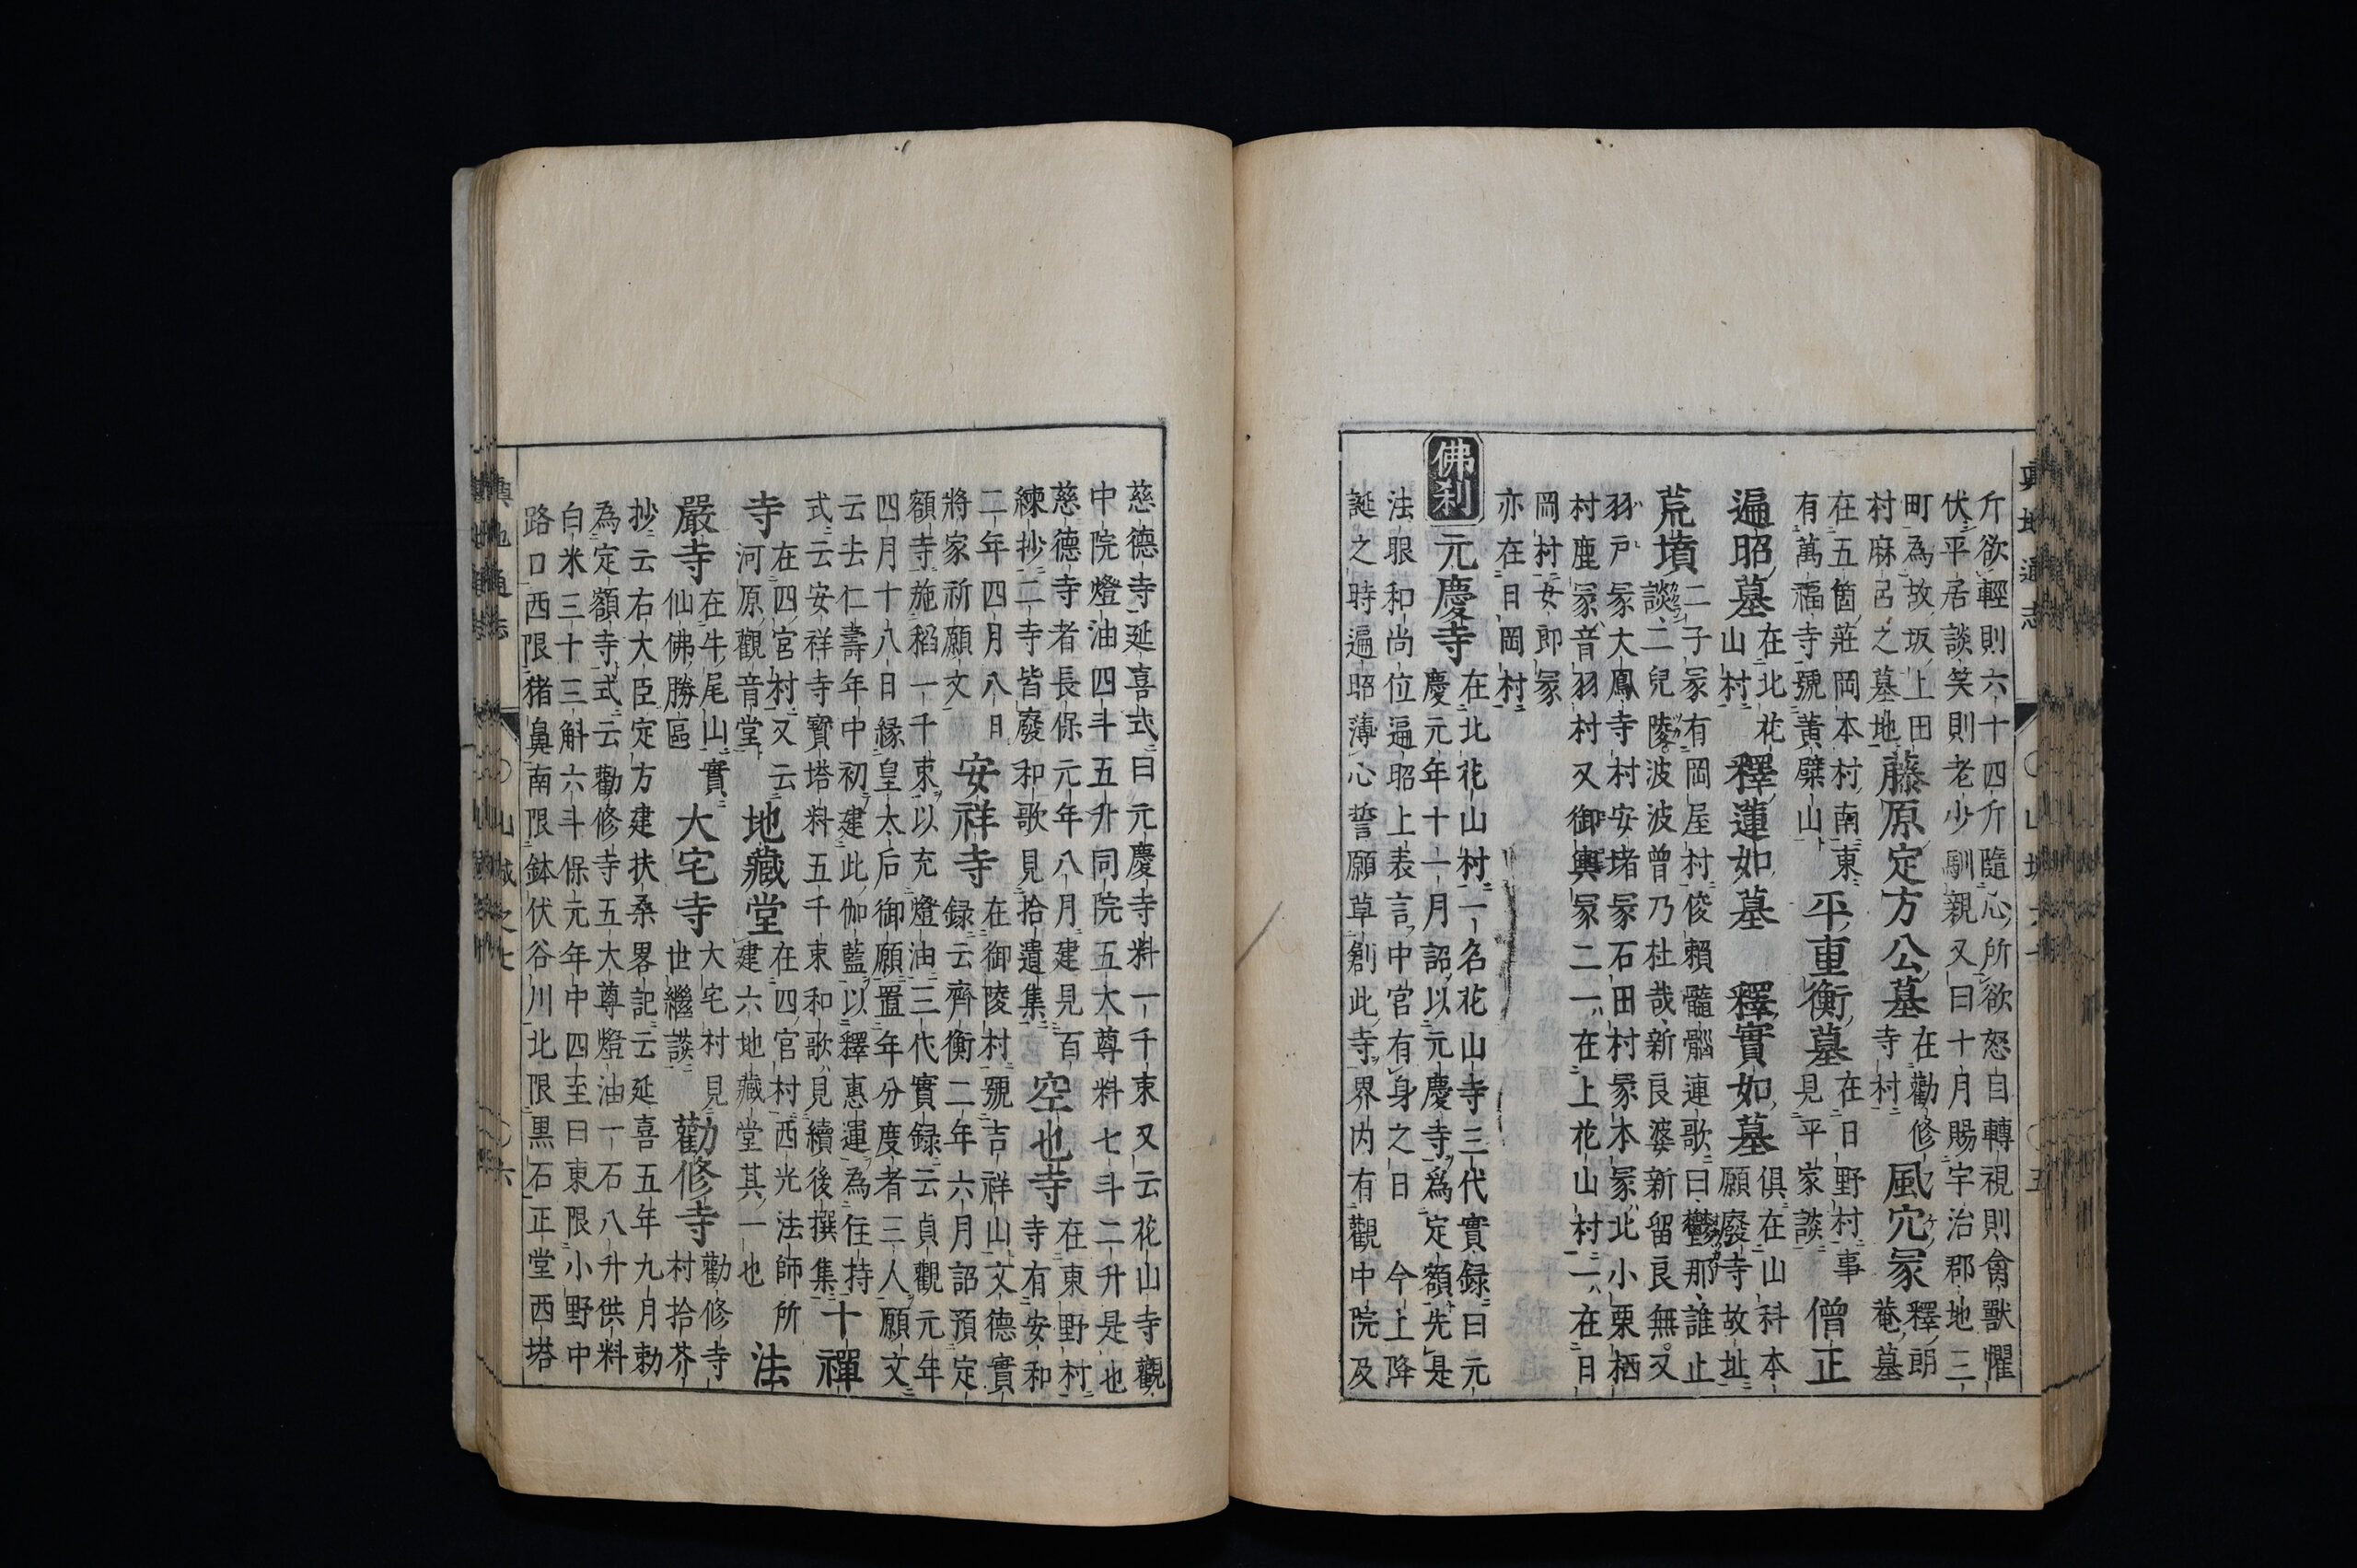 斤欲輕則六十四斤隨心所欲怒目轉視則禽獸懼
伏平居談笑則老少馴親又曰十月賜宇治郡地三
町為故坂上田
村麻呂之墓地
藤原定方公墓
在勸修
寺村
風穴冡
釋朗
菴墓
在五箇莊岡本村南東
有萬福寺號黄檗山
平重衡墓
在日野村事
見平家談
僧正
遍昭墓
在北花
山村
釋蓮如墓
釋實如墓
俱在山科本
願廢寺故址
荒墳
二子冡有岡屋村俊賴髓腦連歌曰欝那誰止
談二兒陵波波曾乃杜哉新良婆新留良無又
羽戸冡大鳳寺村安堵冡石田村冡本冡北小栗栖
村鹿冡音羽村又御輿冡二一在上花山村一在日
岡村女郎冡
亦在日岡村
佛刹
元慶寺
在北花山村一名花山寺三代實録曰元
慶元年十一月詔以元慶寺爲定額先是
法眼和尚位遍昭上表言中官有身之日今上降
誕之時遍昭薄心誓願草創此寺界内有觀中院及
慈德寺延喜式曰元慶寺料一千束又云花山寺觀
中院燈油四斗五升同院五大尊料七斗二升是也
慈德寺者長保元年八月建見百
練抄二寺皆廢和歌見拾遺集
空也寺
在東野村
寺有安和
二年四月八日
將家祈願文
安祥寺
在御陵村號吉祥山文德實
録云齊衡二年六月詔預定
額寺施稻一千束以充燈油三代實録云貞觀元年
四月十八日縁皇太后御願置年分度者三人願文
云去仁壽年中初建此伽藍以釋惠運為住持
式云安祥寺寶塔料五千束和歌見續後撰集
十禪
寺
在四宮村又云
河原觀音堂
地藏堂
在四官村西光法師所
建六地藏堂其一也
法
嚴寺
在牛尾山實
仙佛勝區
大宅寺
大宅村見
世繼談
勸修寺
勸修寺
村拾芥
抄云右大臣定方建扶桑畧記云延喜五年九月勅
為定額寺式云勸修寺五大尊燈油一石八升供料
白米三十三斛六斗保元年中四至曰東限小野中
路口西限猪鼻南限鉢伏谷川北限黒石正堂西塔